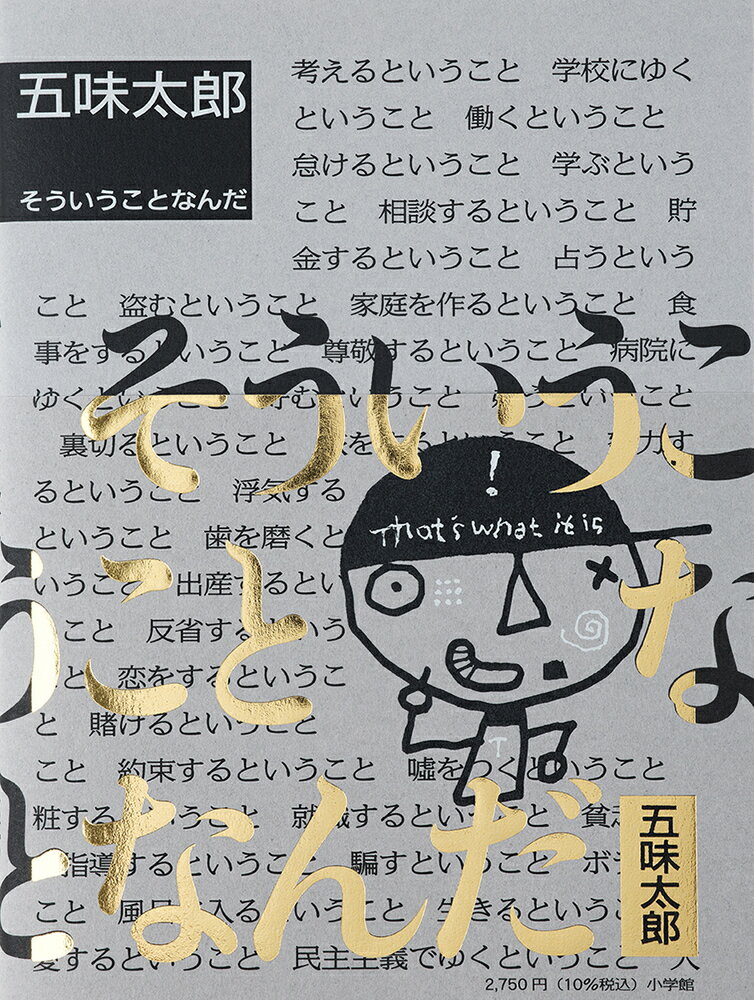 五味太郎
そういうことなんだ
考えるということ　学校にゆく
ということ　働くということ
怠けるということ　学ぶという
こと　相談するということ　貯
金するということ　占うという
こと　盗むということ　家庭を作るということ　食
事をするということ　尊敬するということ　病院に
ゆくということ　むということ　ということ
裏切るということ　を　ということ　力す
るということ　浮気する
ということ　歯を磨くと
いうこと　出産するとい
うこと　反省するという
こと　恋をするというこ
と　賭けるということ
こと　約束するということ　噓をつくということ
粧するということ　就職するということ　貧
指導するということ　騙すということ　ボ
こと　風呂に入るということ　生きるというこ
愛するということ　民主主義でゆくということ　人
そういうこ
うことな
となんだ
!
That's what it is
T
五味太郎
2,750円（10%税込）小学館